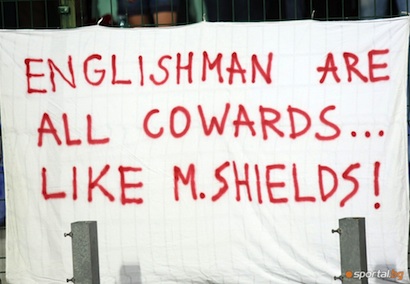 ENGLISHMAN ARE
ALL COWARDS...
LIKE M.SHIELDS!
sportal.bg